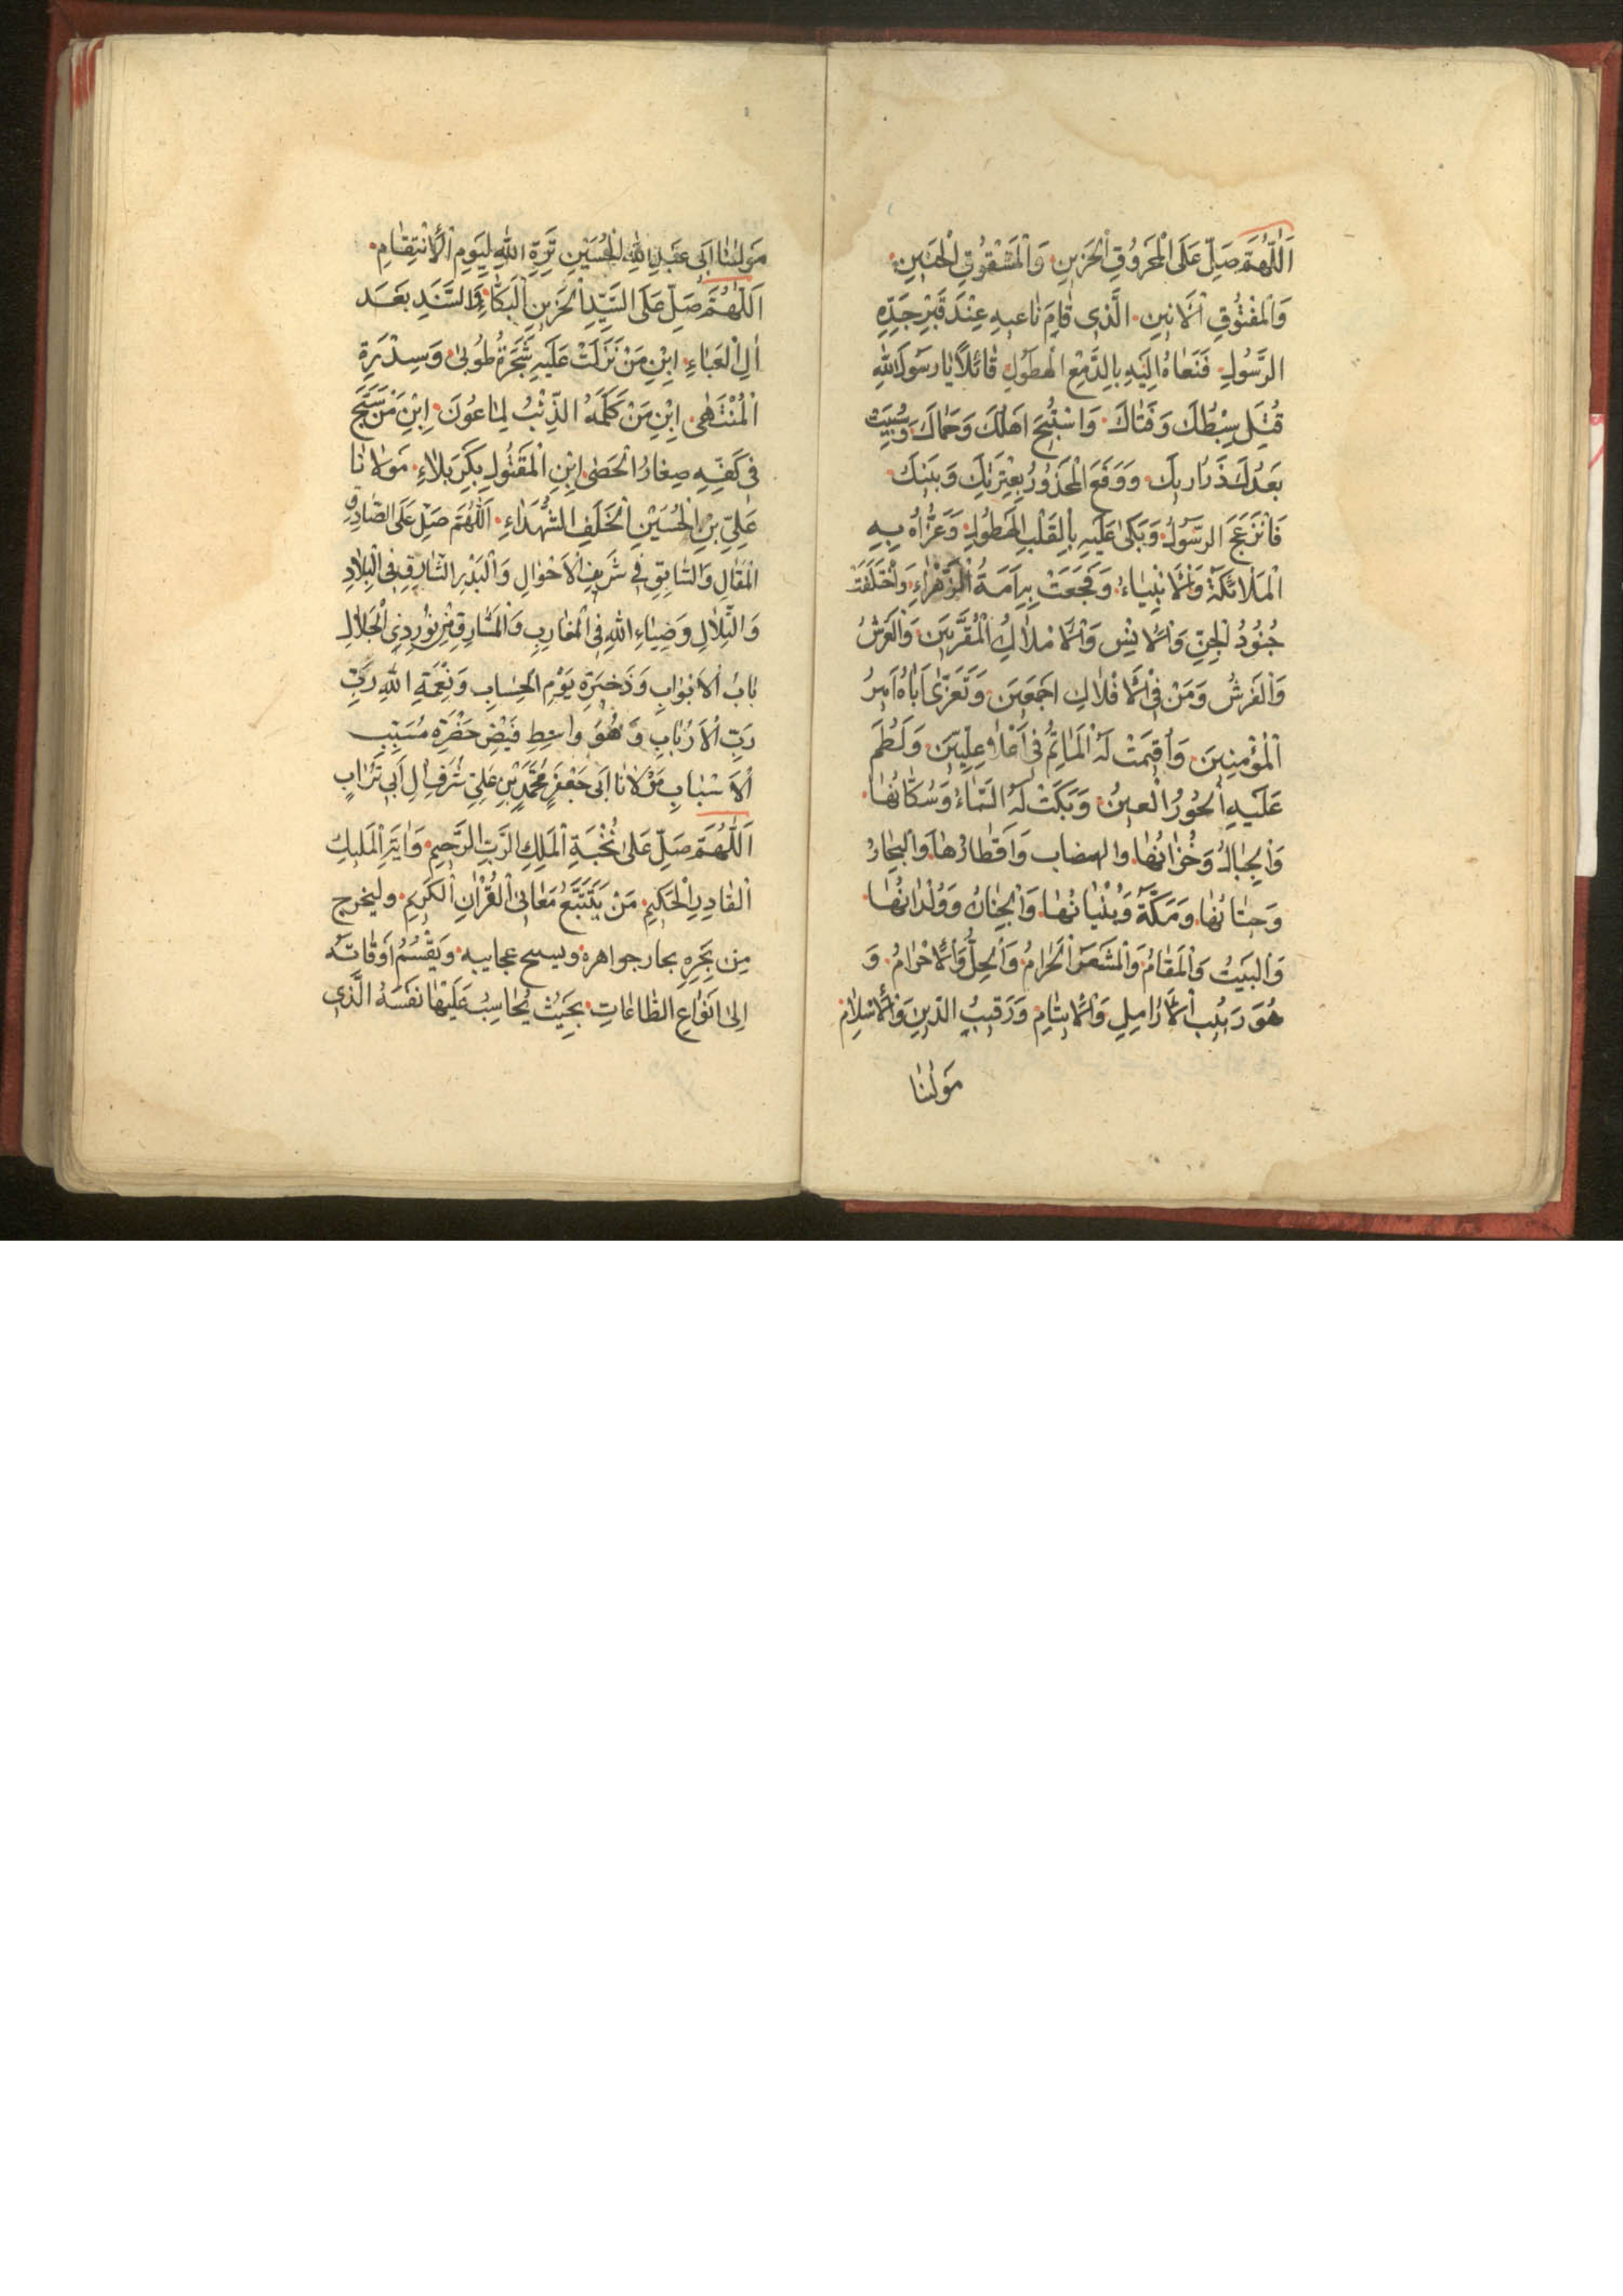 اَللّٰهُمَّ صَلِّ عَلَى الْمَحْرُوقِ الْحَزِينِ وَالْمَشْقُوقِ الْجَبِينِ
وَالْمَفْتُوقِ الْاَنِينِ الَّذِى قَامَ نَاعِيهِ عِنْدَ قَبْرِ جَدِّهِ
الرَّسُولِ فَنَعَاهُ اِلَيْهِ بِالدَّمْعِ الْهَطُولِ قَائِلًا يَا رَسُولَ اللهِ
قُتِلَ سِبْطُكَ وَفَتَاكَ وَاسْتُبِيحَ اَهْلُكَ وَحِمَاكَ وَسُبِيَتْ
بَعْدَكَ ذَرَارِيكَ وَوَقَعَ الْمَحْذُورُ بِعِتْرَتِكَ وَبَنِيكَ
فَانْزَعَجَ الرَّسُولُ وَبَكىٰ عَلَيْهِ بِالْقَلْبِ الْهَطُولِ وَعَزَّاهُ بِهِ
الْمَلَائِكَةُ وَالْاَنْبِيَاءُ وَفُجِعَتْ بِهِ اُمَّهُ الزَّهْرَاءُ وَاخْتَلَفَتْ
جُنُودُ الْجِنِّ وَالْاِنْسِ وَالْاَمْلَاكِ الْمُقَرَّبِينَ وَالْعَرْشُ
وَالْفَرْشُ وَمَنْ فِى الْاَفْلَاكِ اَجْمَعِينَ وَتَعَزّىٰ اَبَاهُ اَمِيرُ
الْمُؤْمِنِينَ وَاُقِيمَتْ لَهُ الْمَاتِمُ فِى اَعْلَا عِلِّيِّينَ وَلَطَمَ
عَلَيْهِ الْحُورُ الْعِينُ وَبَكَتْ لَهُ السَّمَاءُ وَسُكَّانُهَا
وَالْجِبَالُ وَخُزَّانُهَا والهضاب وَاَقْطَارُهَا وَالْبِحَارُ
وَحِيتَانُهَا وَمَكَّةُ وَبُنْيَانُهَا وَالْجِنَانُ وَوِلْدَانُهَا
وَالْبَيْتُ وَالْمَقَامُ وَالْمَشْعَرُ الْحَرَامُ وَالْحِلُّ وَالْاِحْرَامُ وَ
هُوَ رَبِيبُ الْاَرَامِلِ وَالْاَيْتَامِ وَرَقِيبُ الدِّينِ وَالْاِسْلَامِ
مَوْلٰنَا
مَوْلٰنَا اَبِى عَبْدِ اللهِ الْحُسَيْنِ تِرَةِ اللهِ لِيَوْمِ الْاِنْتِقَامِ
اَللّٰهُمَّ صَلِّ عَلَى السَّيِّدِ الْحَزِينِ الْبَكَّاءِ وَالسَّنَدِ بَعْدَ
اٰلِ الْعَبَاءِ ابْنِ مَنْ نَزَلَتْ عَلَيْهِ شَجَرَةُ طُوبىٰ وَسِدْرَةِ
الْمُنْتَهىٰ ابْنِ مَنْ كَلَّمَهُ الذِّئْبُ لِمَاعُونَ اِبْنِ مَنْ سَبَّحَ
فِى كَفِّهِ صِغَارُ الْحَصىٰ ابْنِ الْمَقْتُولِ بِكَرْبَلَاءِ مَوْلَانَا
عَلِىِّ بْنِ الْحُسَيْنِ الْخَلَفِ الشُّهَدَاءِ اَللّٰهُمَّ صَلِّ عَلَى الصَّادِقِ
الْمَقَالِ وَالسَّابِقِ فِى شَرِيفِ الْاَحْوَالِ وَالْبَدْرِ الشَّارِقِ فِى الْبِلَادِ
وَالتِّلَالِ وَضِيَاءِ اللهِ فِى الْمَغَارِبِ وَالْمَشَارِقِ مِنْ نُورِ ذِى الْجَلَالِ
بَابُ الْاَبْوَابِ وَذَخِيرَةِ يَوْمِ الْحِسَابِ وَنِعْمَةِ اللهِ رَبِّ
رَبِّ الْاَرْبَابِ وَهُوَ وَاسِطِ فَيْضِ حَضْرَةِ مُسَبِّبِ
الْاَسْبَابِ مَوْلَانَا اَبِى جَعْفَرٍ مُحَمَّدِ بْنِ عَلِىٍّ شَرَفِ اٰلِ اَبِى تُرَابٍ
اَللّٰهُمَّ صَلِّ عَلىٰ نُخْبَةِ الْمَلِكِ الرَّبِّ الرَّحِيمِ وَاٰيَةِ الْمَلِيكِ
الْقَادِرِ الْحَكِيمِ مَنْ يَتَتَبَّعُ مَعَانِىَ الْقُرْاٰنِ الْكَرِيمِ وليخرج
مِن بَحْرِهِ بحار جواهره ويسبح عجايبه وَيَقْسُمُ اَوْقَاتَهُ
اِلىٰ اَنْوَاعِ الطَّاعَاتِ بِحَيْثُ يُحَاسِبُ عَلَيْهَا نَفْسَهُ الَّذِى